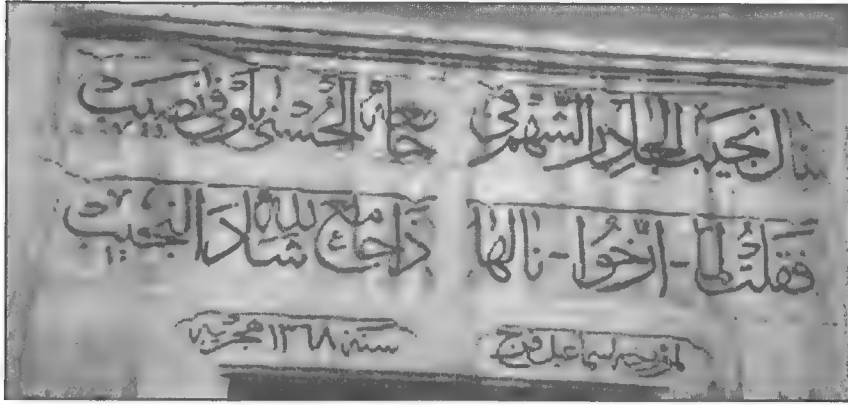 نال نجيب الجادر الشهم في جامعه الحسنى بأوفى نصيب
فقلت لما - ارّخوا - نالها ذا جامع لله شاد النجيب
لمؤرخه اسماعيل فرج سنة ١٣٦٨ هجرية